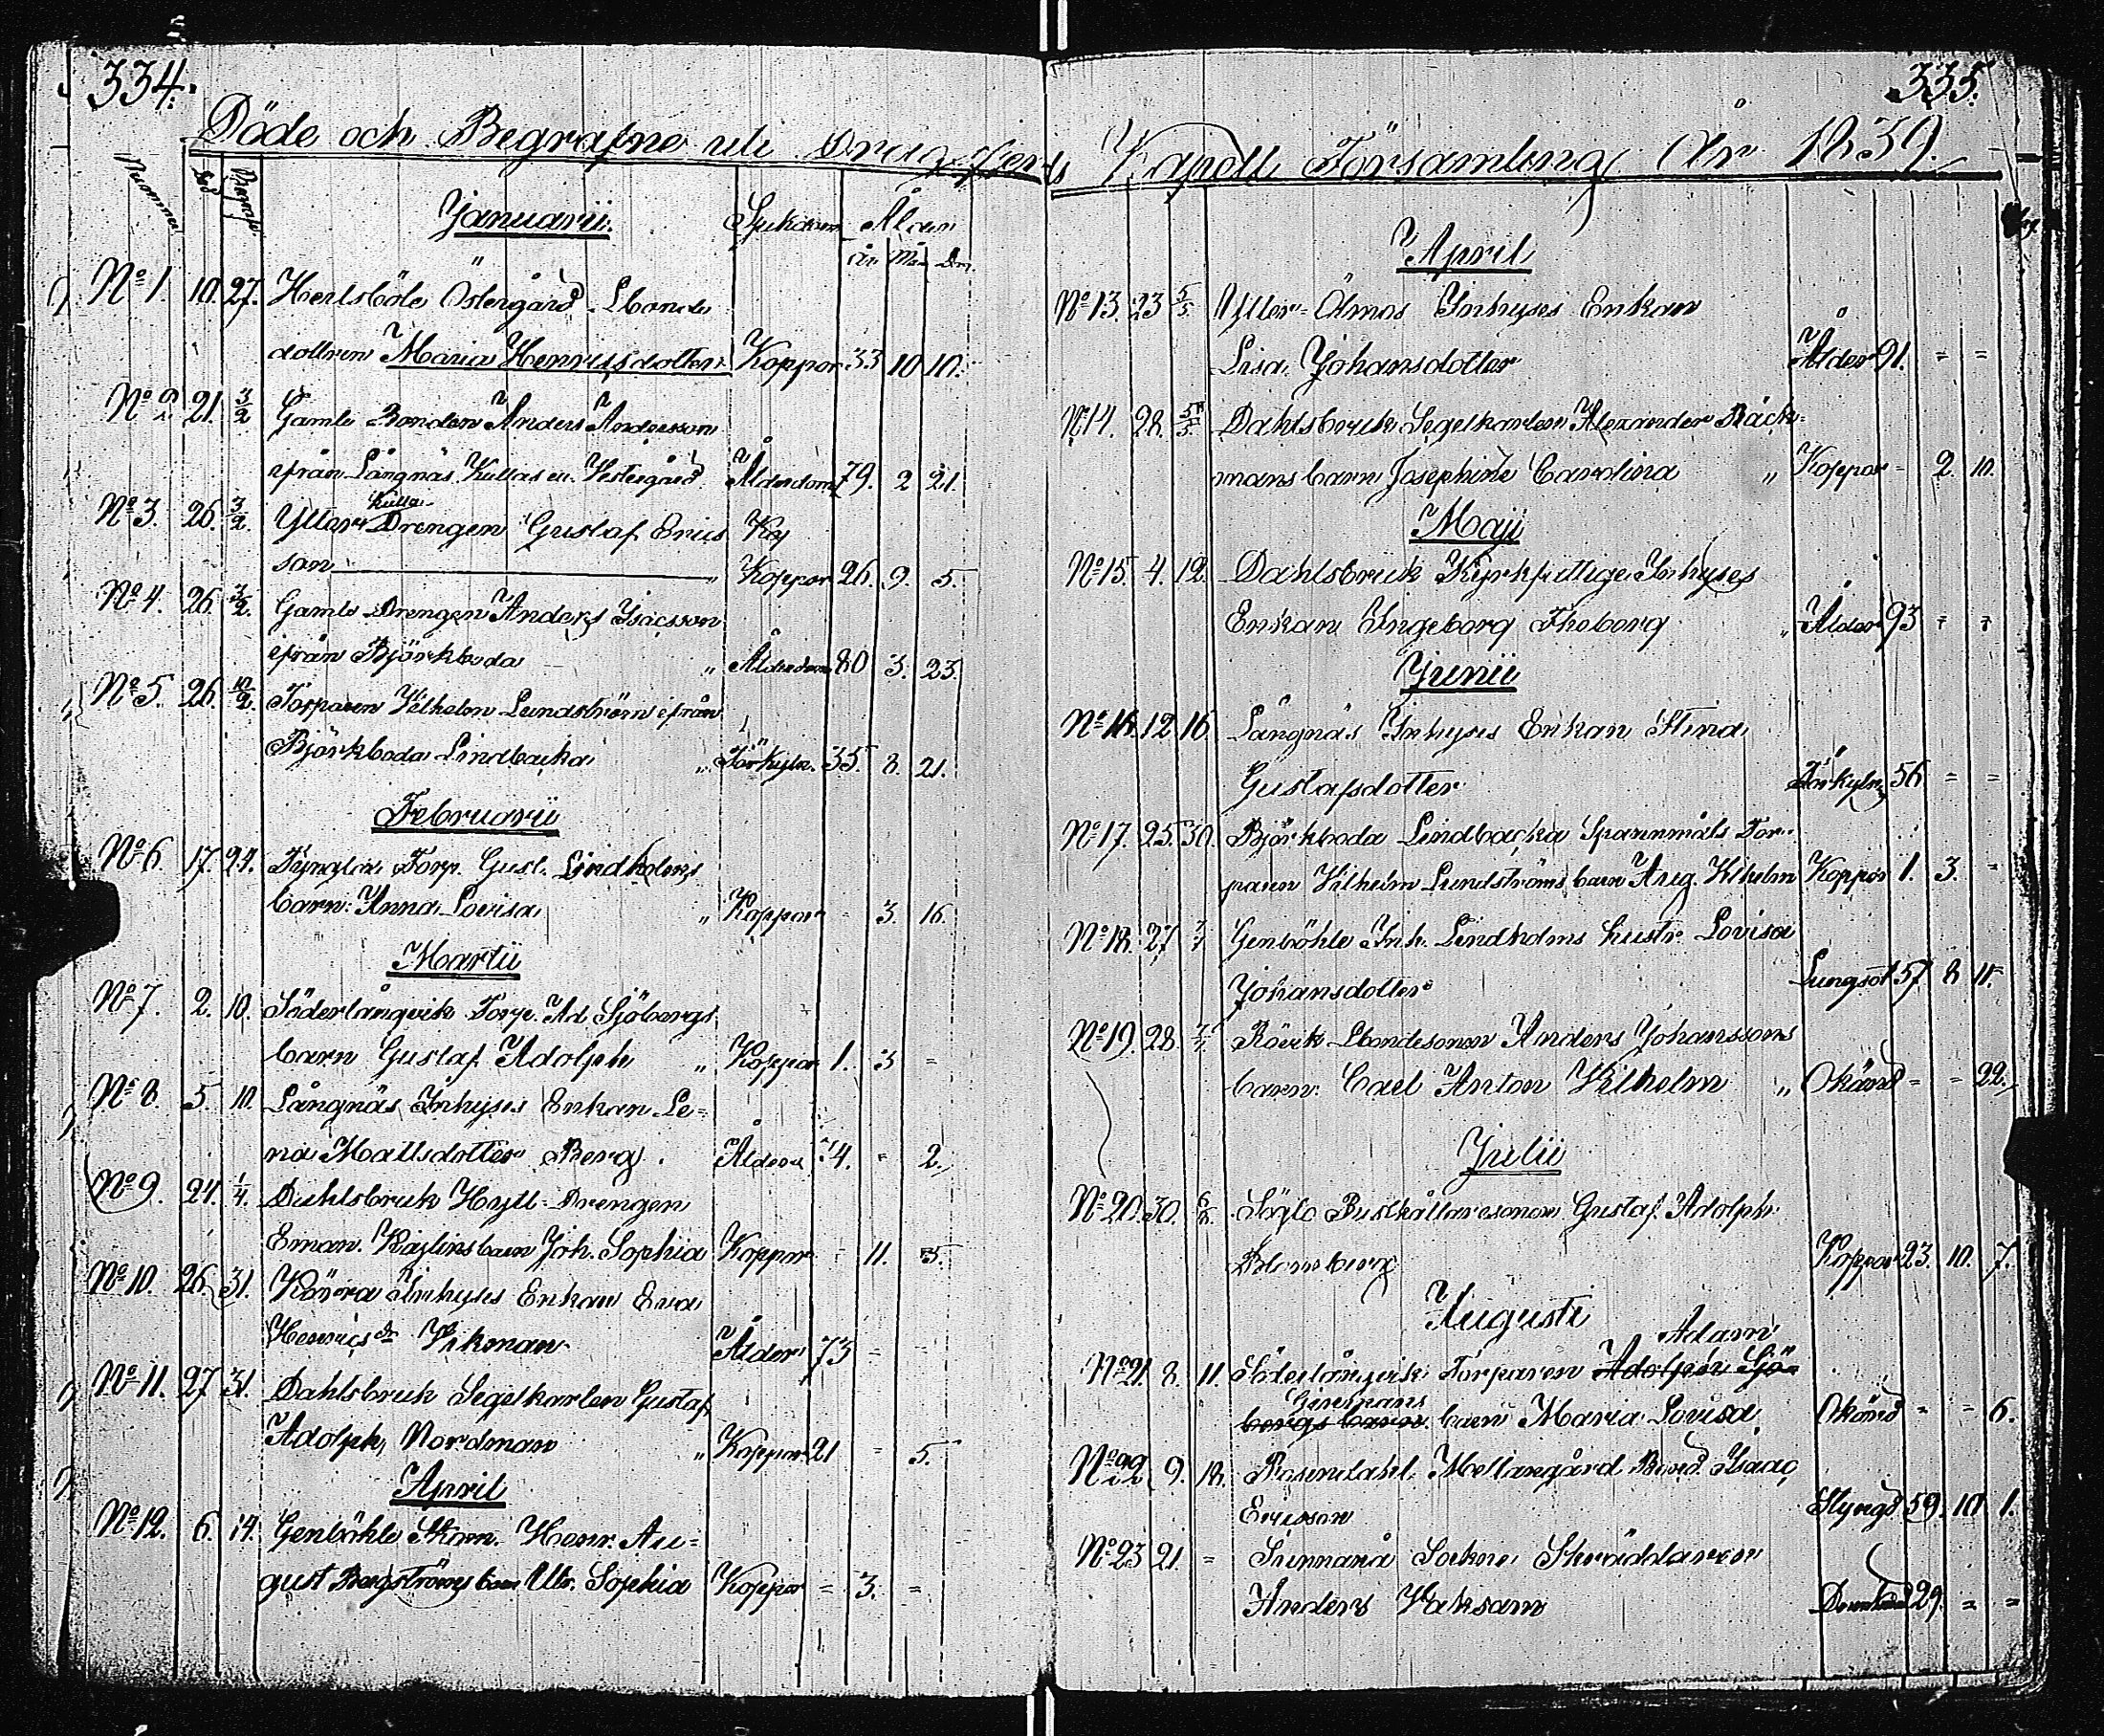 334.
Döde och Begrafne uti Dragsfjerds
Nummer Död Begrafn.
Januarii. Sjukdom Ålder
År Mån. Dag.
No 1. 10. 27. Hertsböle Östergård Bonde
dottren Maria Henricsdotter Koppor 33 10 10.
No 2. 21. 3/2 Gamle Bonden Anders Andersson
ifrån Långnäs Kullas Vestergård Ålderdom 79. 2 21
No 3. 26. 3/2. Ytter Kulla Drengen Gustaf Erics
son Koppor 26. 9. 5.
No 4. 26 3/2. Gamle Drengen Anders Isacsson
ifrån Björkboda „ Ålderdom 80 3. 23.
No 5. 26. 10/2. Torparen Vilhelm Lundström ifrån
Björkboda Lindbacka „ Förkyln. 35. 8. 21.
Februarii
No 6 17. 24. Torp. Gust. Lindholms
barn: Anna Lovisa „ Koppor - 3. 16.
Martii
No 7. 2. 10. Söderlångvik Torp. Ad Sjöbergs
barn Gustaf Adolph „ Koppor 1. 3 =
No 8. 5. 10. Långnäs Inhyses Enkan Le=
na Mattsdotter Berg. Ålder 74. = 2.
No 9. 24. 1/4. Dahlsbruk Hytt-Drengen
Eman. barn Joh. Sophia Koppor - 11. 5.
No 10. 26. 31. Inhyses Enkan Eva
Henricsdr Vikman Ålder 73 = =
No 11. 27 31. Dahlsbruk Segelkarlen Gustaf
Adolph Nordman „ Koppor 21 = 5.
April
No 12. 6. 14. Genböhle Henr. Au=
gust Bergströms barn Ulr. Sophia Koppor = 3. =
335.
Kapell Församling År 1839.
April
No 13. 23 5/5 Ytter-Ölmos Inhyses Enkan
Lisa Johansdotter Ålder 91. = =
No 14. 28. 5/5. Dahlsbruk Segelkarlen Alexander Bäck=
mans barn Josephine Carolina „ Koppor - 2. 10.
Maji
No 15. 4. 12. Dahlsbruk Kyrkfattige Inhyses
Enkan Ingeborg Thoberg „ Ålder 93 = =
Junii
No 16. 12 16. Långnäs Inhyses Enkan Stina
Gustafsdotter Förkyln. 56 = =
No 17. 25. 30. Björkboda Lindbacka Spannmåls Tor=
parn Vilhelm Lundströms barn Aug. Vilhelm Koppor 1. 3. =
No 18. 27 7/7 Genböhle Inh. Lindholms hustr. Lovisa
Johansdotter Lungsot 57 8 11.
No 19. 28. 7/7. Rövik Bondesonen Anders Johanssons
barn: Carl Anton Vilhelm „ Okänd - - 22.
Julii
No 20. 30. 6/8. Söglo Gustaf Adolph
Blomberg Koppor 23. 10. 7.
Augusti
Adam
No 21. 8. 11. Söderlångvik Torparen Adolphi Sjö=
bergs barn barn Maria Lovisa Okänd - - 6.
No 22. 9. 18. Rosendahl Mellangård Bond. Isaac
Ericsson Slyngd 59. 10 1.
No 23 21. = Sockne Skräddaren
Anders 29. = =